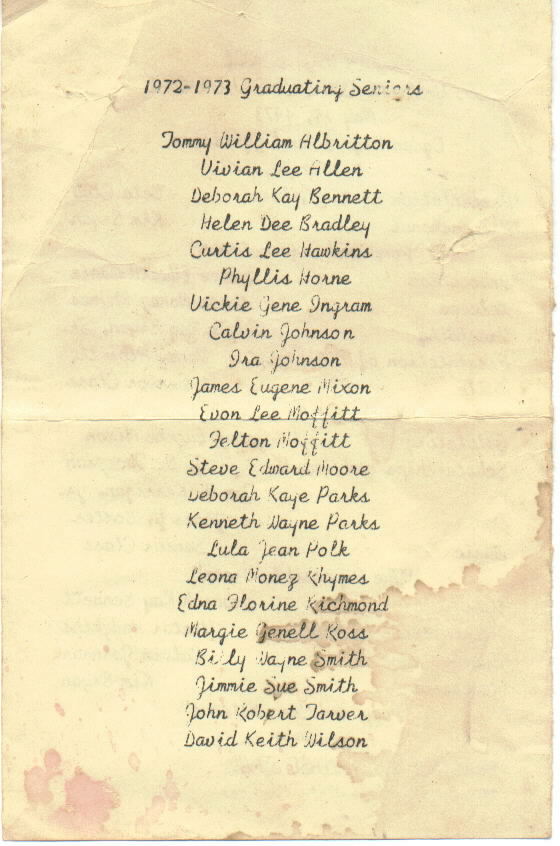 1972-1973 Graduating Seniors
Tommy William Albritton
Vivian Lee Allen
Deborah Kay Bennett
Helen Dee Bradley
Curtis Lee Hawkins
Phyllis Horne
Vickie Gene Ingram
Calvin Johnson
Ira Johnson
James Eugene Mixon
Evon Lee Moffitt
Felton Moffitt
Steve Edward Moore
Deborah Kaye Parks
Kenneth Wayne Parks
Lula Jean Polk
Leona Monez Rhymes
Edna Florine Richmond
Margie Genell Ross
Billy Wayne Smith
Jimmie Sue Smith
John Robert Tarver
David Keith Wilson